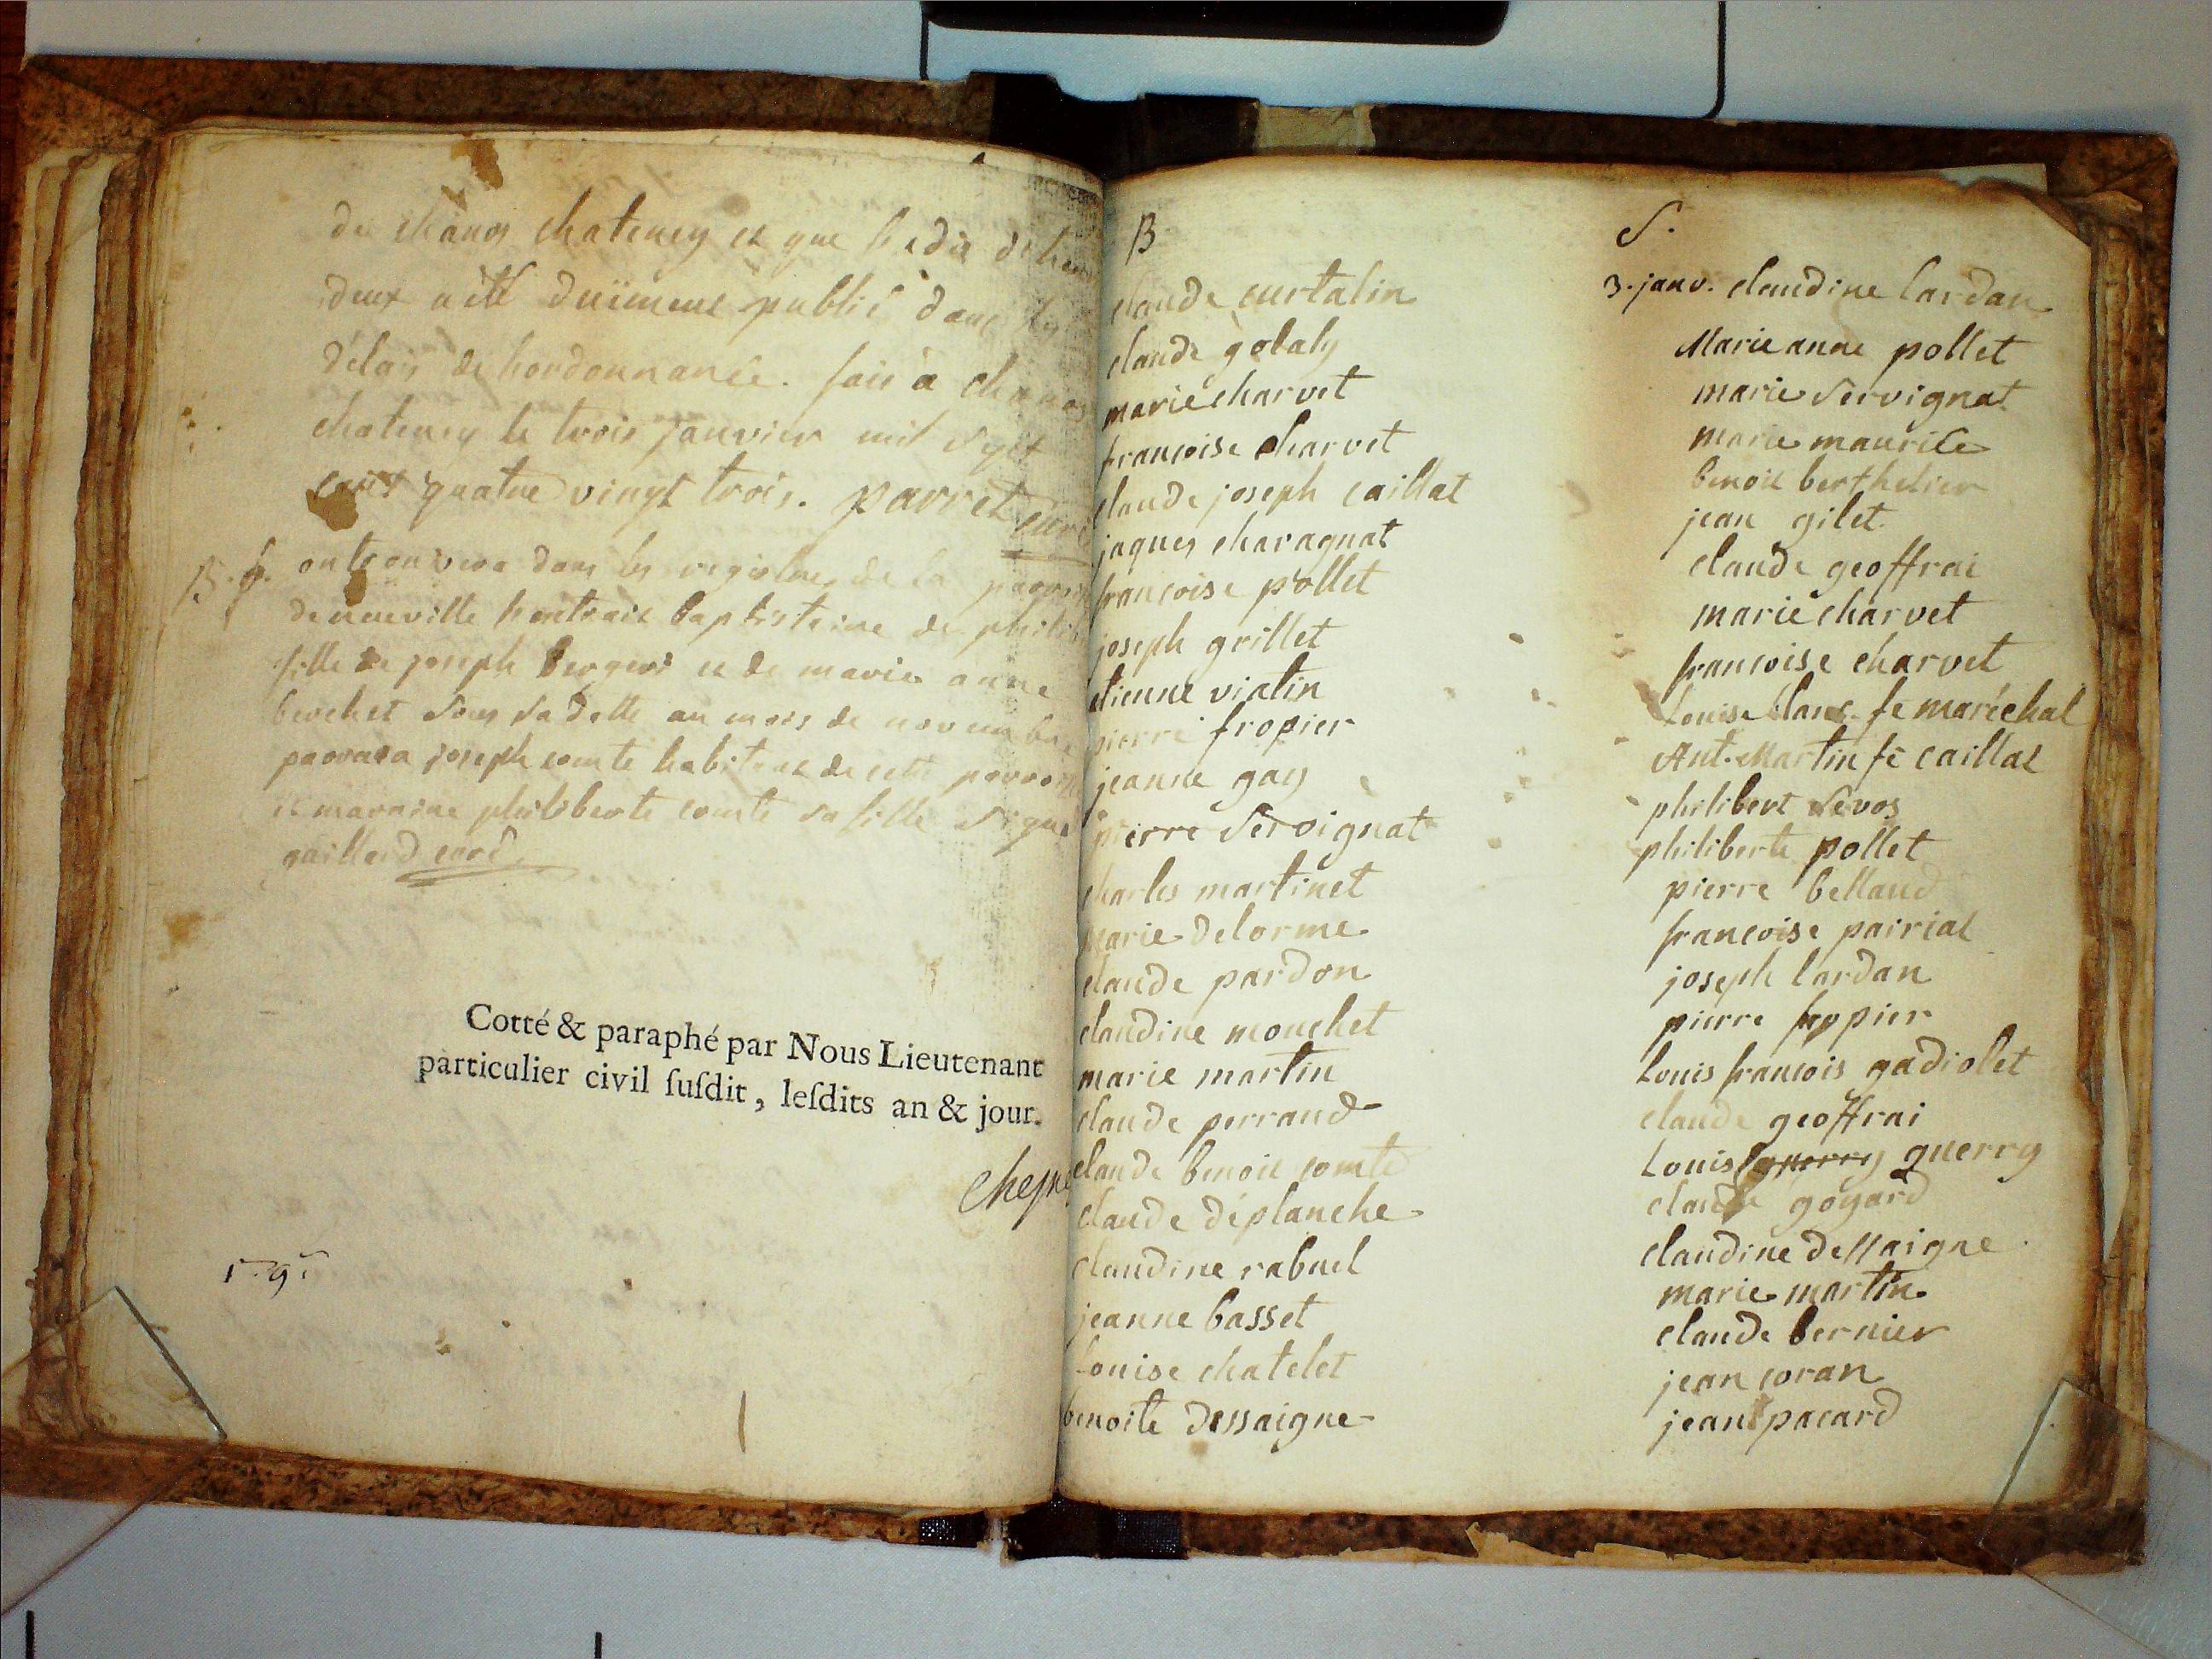 de chanoz chateney et que l'edit de henri
deux a été duëment publié dans les
délais de l'ordonnance. fait à chanoz
chateney le trois janvier mil sept
cent quatre vingt trois. parret curé
B. f. on trouvera dans les registres de la parroisse
de neuville l'extrait baptistaire de
fille de joseph bergeri et de marie anne
brochet sous sa datte au mois de novembre
parrain joseph comte habitant de cette parroisse
et marraine philiberte comte sa fille signé
gaillard curé.
Cotté & paraphé par Nous Lieutenant
particulier civil ſuſdit, leſdits an & jour.
B
claude curtalin
claude golaly
marie charvet
francoise charvet
claude joseph caillat
jaques charagnat
francoise pollet
joseph grillet
etienne vialin
pierre fropier
jeanne gay
pierre servignat
charles martinet
marie delorme
claude pardon
claudine mouchet
marie martin
claude perraud
claude benoit comte
claude déplanche
claudine rabuel
jeanne basset
Louise chatelet
benoite dessaigne
S.
3. janv. claudine lardan
Marie anne pollet
marie servignat
marie maurice
benoit berthelier
jean gilet
claude geoffrai
marie charvet
francoise charvet
Louise blanc fe maréchal
Ant. Martin fe caillat
philibert sevos
philiberte pollet
pierre bellaud
francoise pairial
joseph lardan
pierre fropier
Louis francois gadiolet
claude geoffrai
Louis guerry guerry
claude goyard
claudine dessaigne
marie martin
claude bernier
jean coran
jean pacard